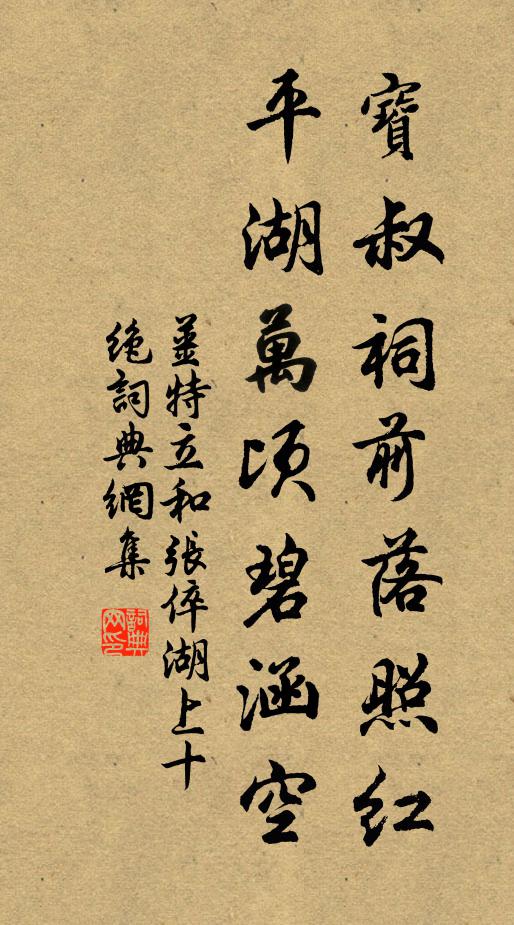 寶叔祠前落照紅
平湖萬頃碧涵空
姜特立和張倅湖上十
絕詞典網集
詞典
网印